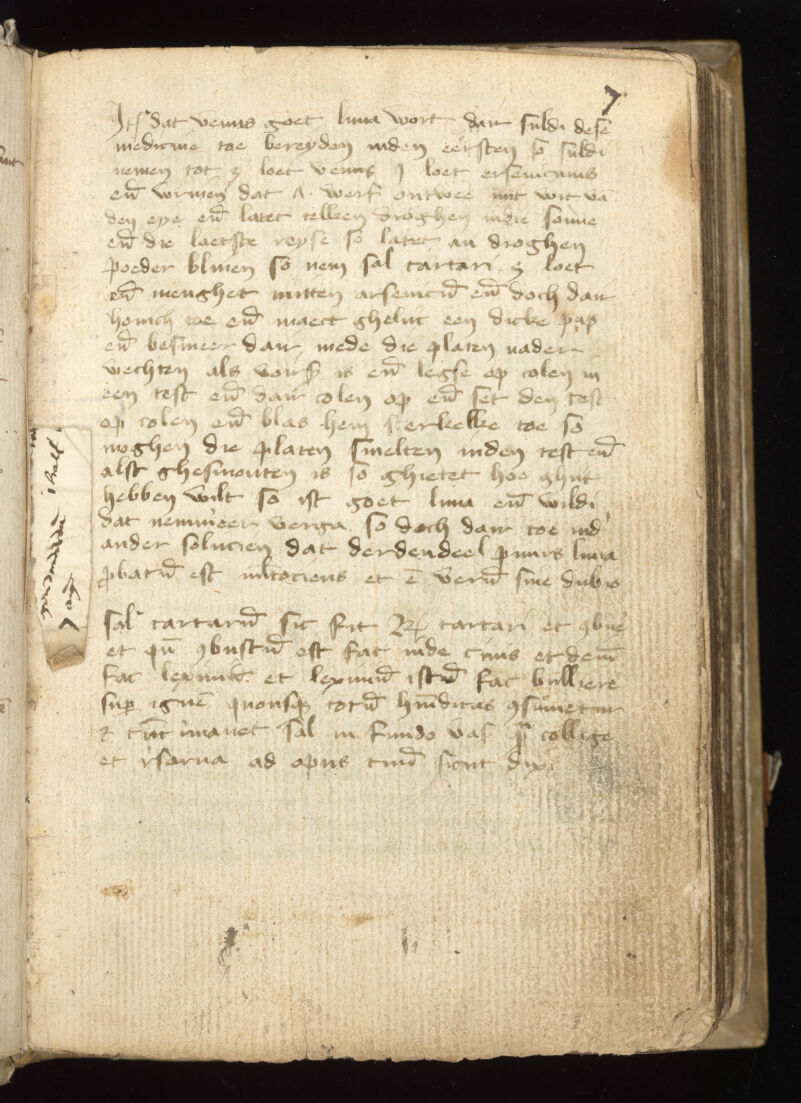 7
Itē dat venus goet luna wort dair suldi dese
medicine toe bereyden inden eersten so suldi
nemen tot 3 loet venus j loet arsenicums
en̄ wrinen dat werf ontwee mit wit vā
den eye en̄ latet telken droghen indie sonne
en̄ die laetste reyse so latet an droghen
poeder bliuen so nem sal tartari loet
en̄ menghet mitten arsenicū en̄ doch dair
honich toe en̄ maect ghelijc een dicke pap
en̄ besmeer dair mede die platen nader
wechten als vors is en̄ legse op colen in
een test en̄ dair colen op en̄ set den test
op colen en̄ blas hem sterkelke toe so
moghen die platen smelten inden test en̄
alst ghesmouten is so ghietet hoe ghijt
hebben wilt so ist goet luna en̄ wildi
dat nemmeer verga so doch dair toe ind'
ander solucien dat derdendeel puurs luna
ꝓbatū est mltociens et ē verū sine dubio
Sal tartarū sic fit Rx tartari et ꝯbure
et qn̄ ꝯbustū est fac inde cinis et deīn
fac lexiuiū et lexiuiū istud fac bulliere
suꝑ ignē quousqꝫ totū hūiditas ꝯsumetur
et tūc manet sal in fundo vas collige
et rẜerua ad opus tuū sicut dixi